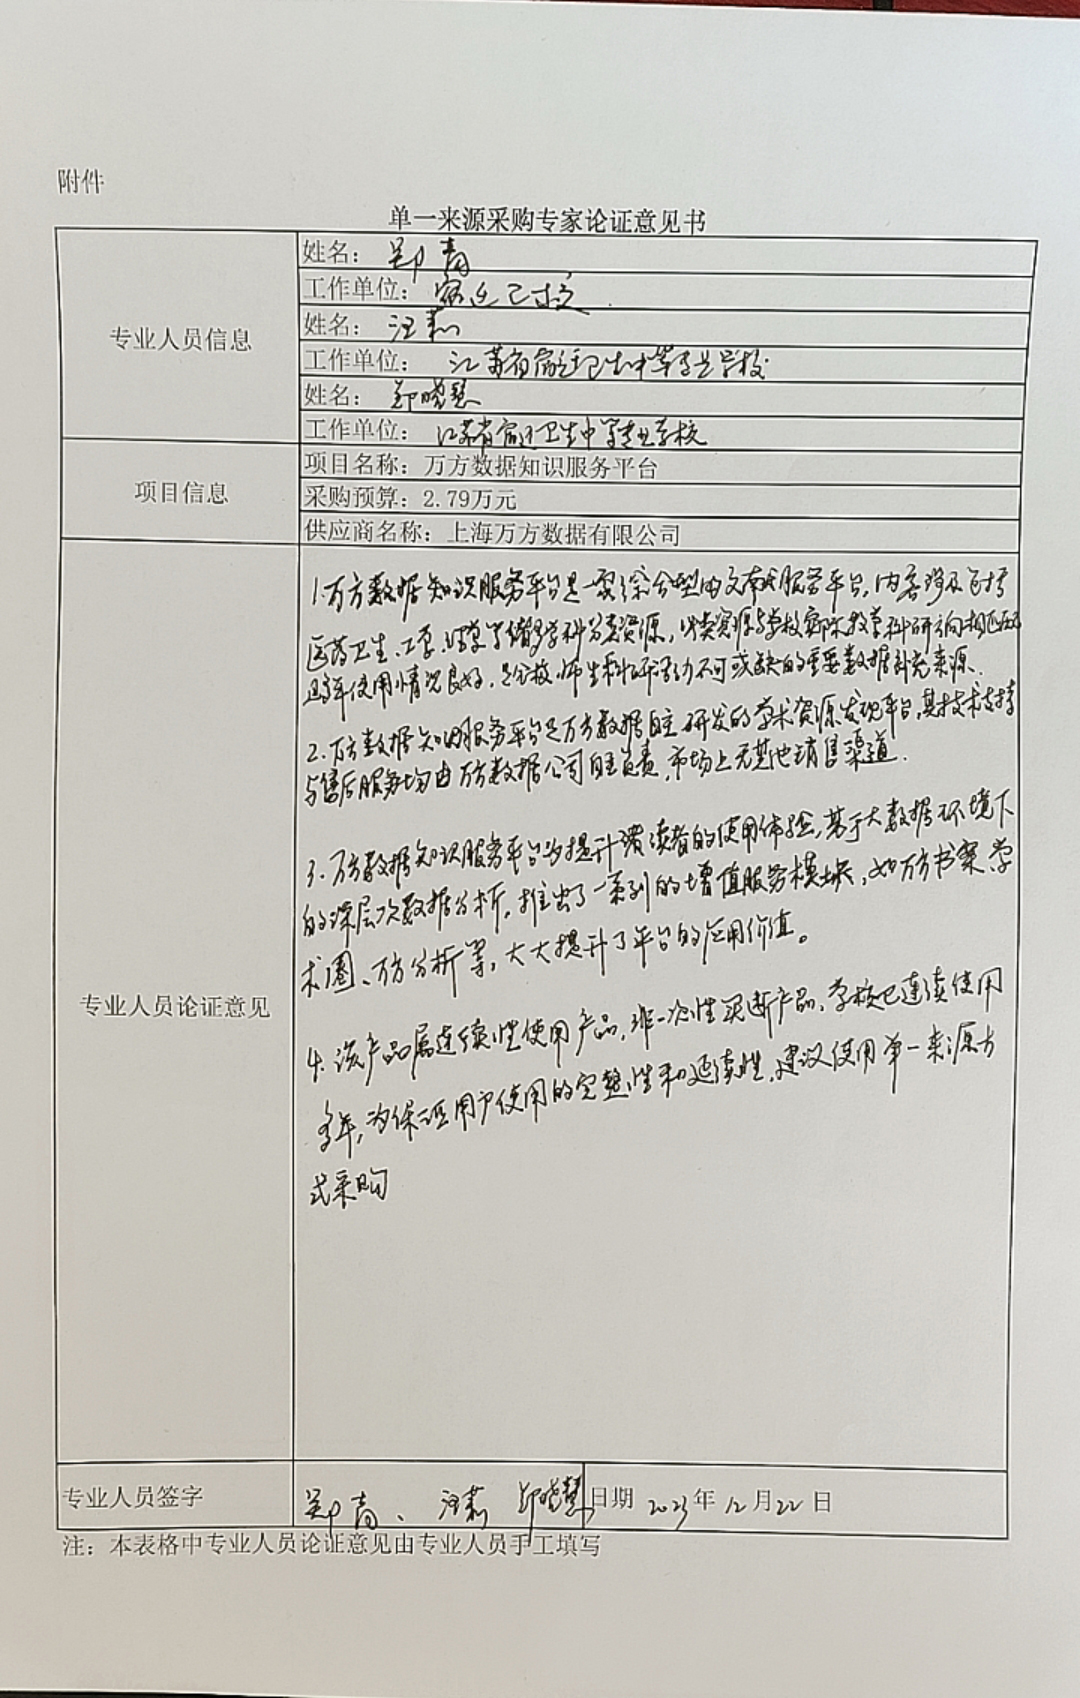 附件
单一来源采购专家论证意见书
专业人员信息
姓名：郑青
工作单位：宿迁卫校
姓名：汪莉
工作单位：江苏省宿迁卫生中等专业学校
姓名：郑晓慧
工作单位：江苏省宿迁卫生中等专业学校
项目信息
项目名称：万方数据知识服务平台
采购预算：2.79万元
供应商名称：上海万方数据有限公司
专业人员论证意见
1.万方数据知识服务平台是一家综合型的文献服务平台，内容涉及包括
医药卫生、工学、等诸多学科分类资源，资源与学校实际教学科研方向相匹配
且多年使用情况良好，是学校师生科研活动不可或缺的重要数据补充来源。
2.万方数据知识服务平台是万方数据自主研发的学术资源发现平台，其技术支持
与售后服务均由万方数据公司自主负责，市场上无其他销售渠道。
3.万方数据知识服务平台为提升读者的使用体验，基于大数据环境下
的深层次数据分析，推出了一系列的增值服务模块，如万方书案、学
术圈、万方分析等，大大提升了平台的应用价值。
4.该产品属连续性使用产品，非一次性买断产品，学校已连续使用
多年，为保证用户使用的完整性和延续性，建议使用单一来源方
式采购
专业人员签字 郑青、汪莉 郑晓慧 日期 2023年12月22日
注：本表格中专业人员论证意见由专业人员手工填写